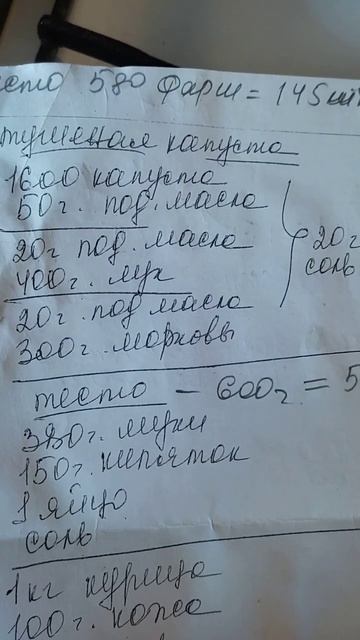 есто 580 фарш = 145 шт
тушеная капуста
1600 капуста
50г. под. масла
20г под. масла
400г. лук
20г под масла
300г. морковы
20г
соль
тесто – 600г = 5
380г. муки
150г. кипяток
1 яйцо
соль
1кг курица
100г. кожа